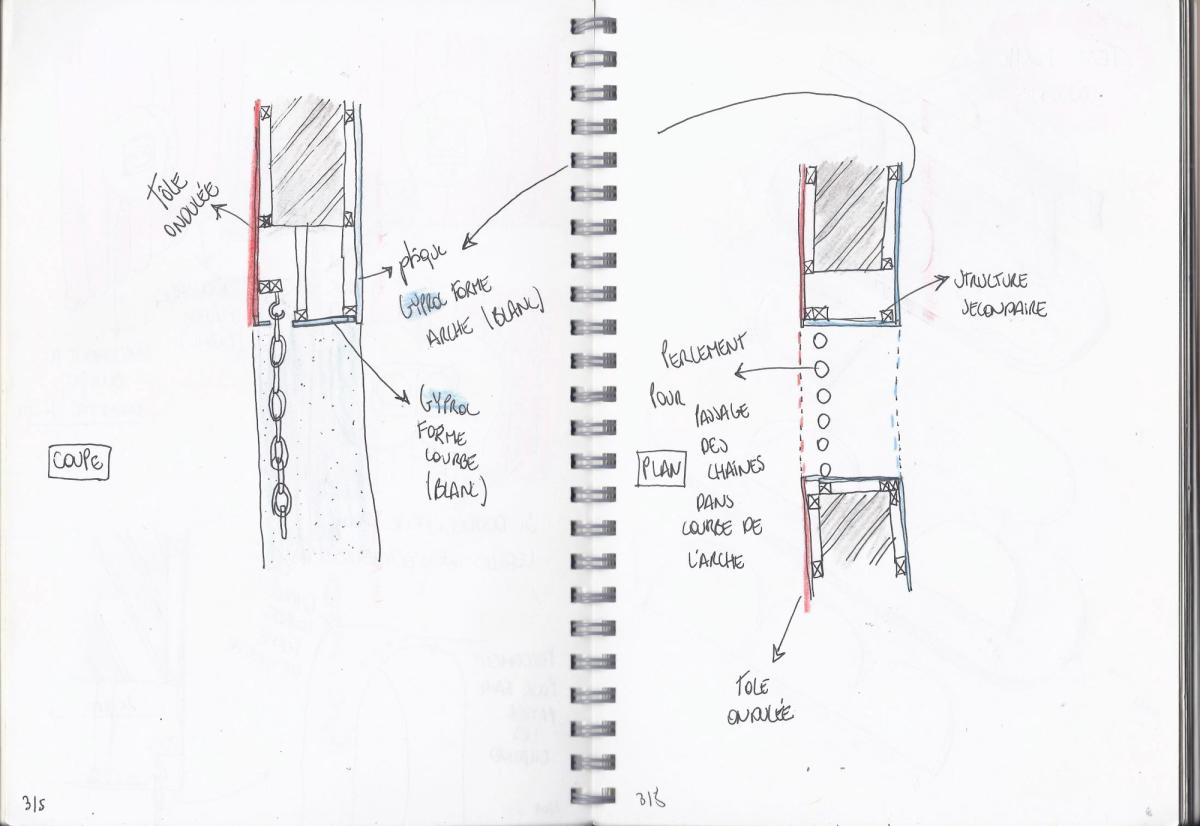 TÔLE
ONDULÉE
plaque
GYPROC FORME
ARCHE (BLANC)
GYPROC
FORME
COURBE
(BLANC)
COUPE
3/5
STRUCTURE
SECONDAIRE
PERCEMENT
POUR
PASSAGE
DES
CHAINES
DANS
COURBE DE
L'ARCHE
PLAN
TOLE
ONDULÉE